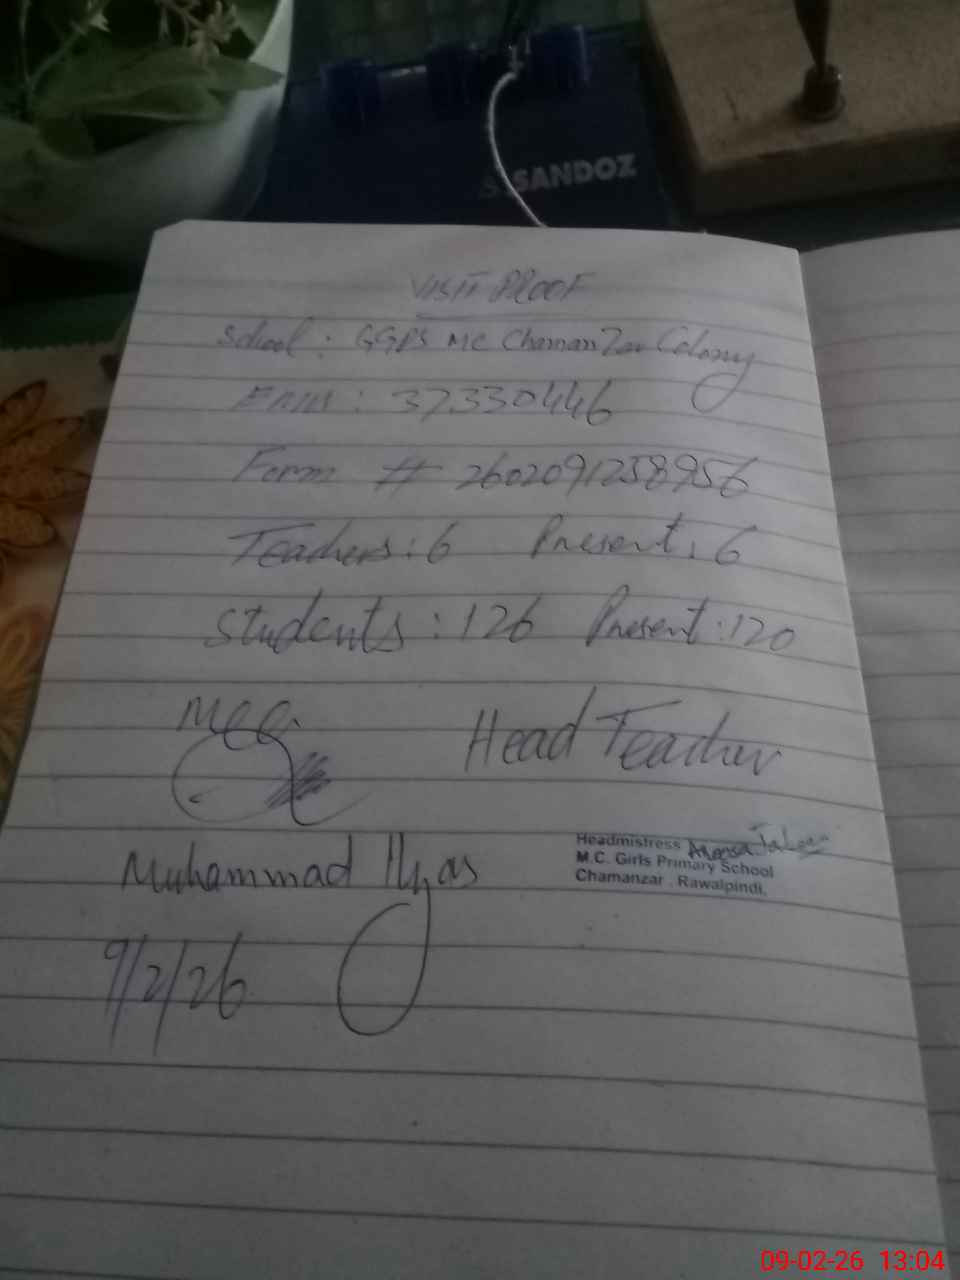 SANDOZ
VISIT PROOF
School: GGPS MC Chaman Zar Colony
EMIS: 37330446
Form # 2602091258956
Teachers: 6 Present: 6
Students: 126 Present: 120
Head Teacher
Headmistress
M.C. Girls Primary School
Chamanzar, Rawalpindi.
Muhammad Ilyas
9/2/26
09-02-26 13:04